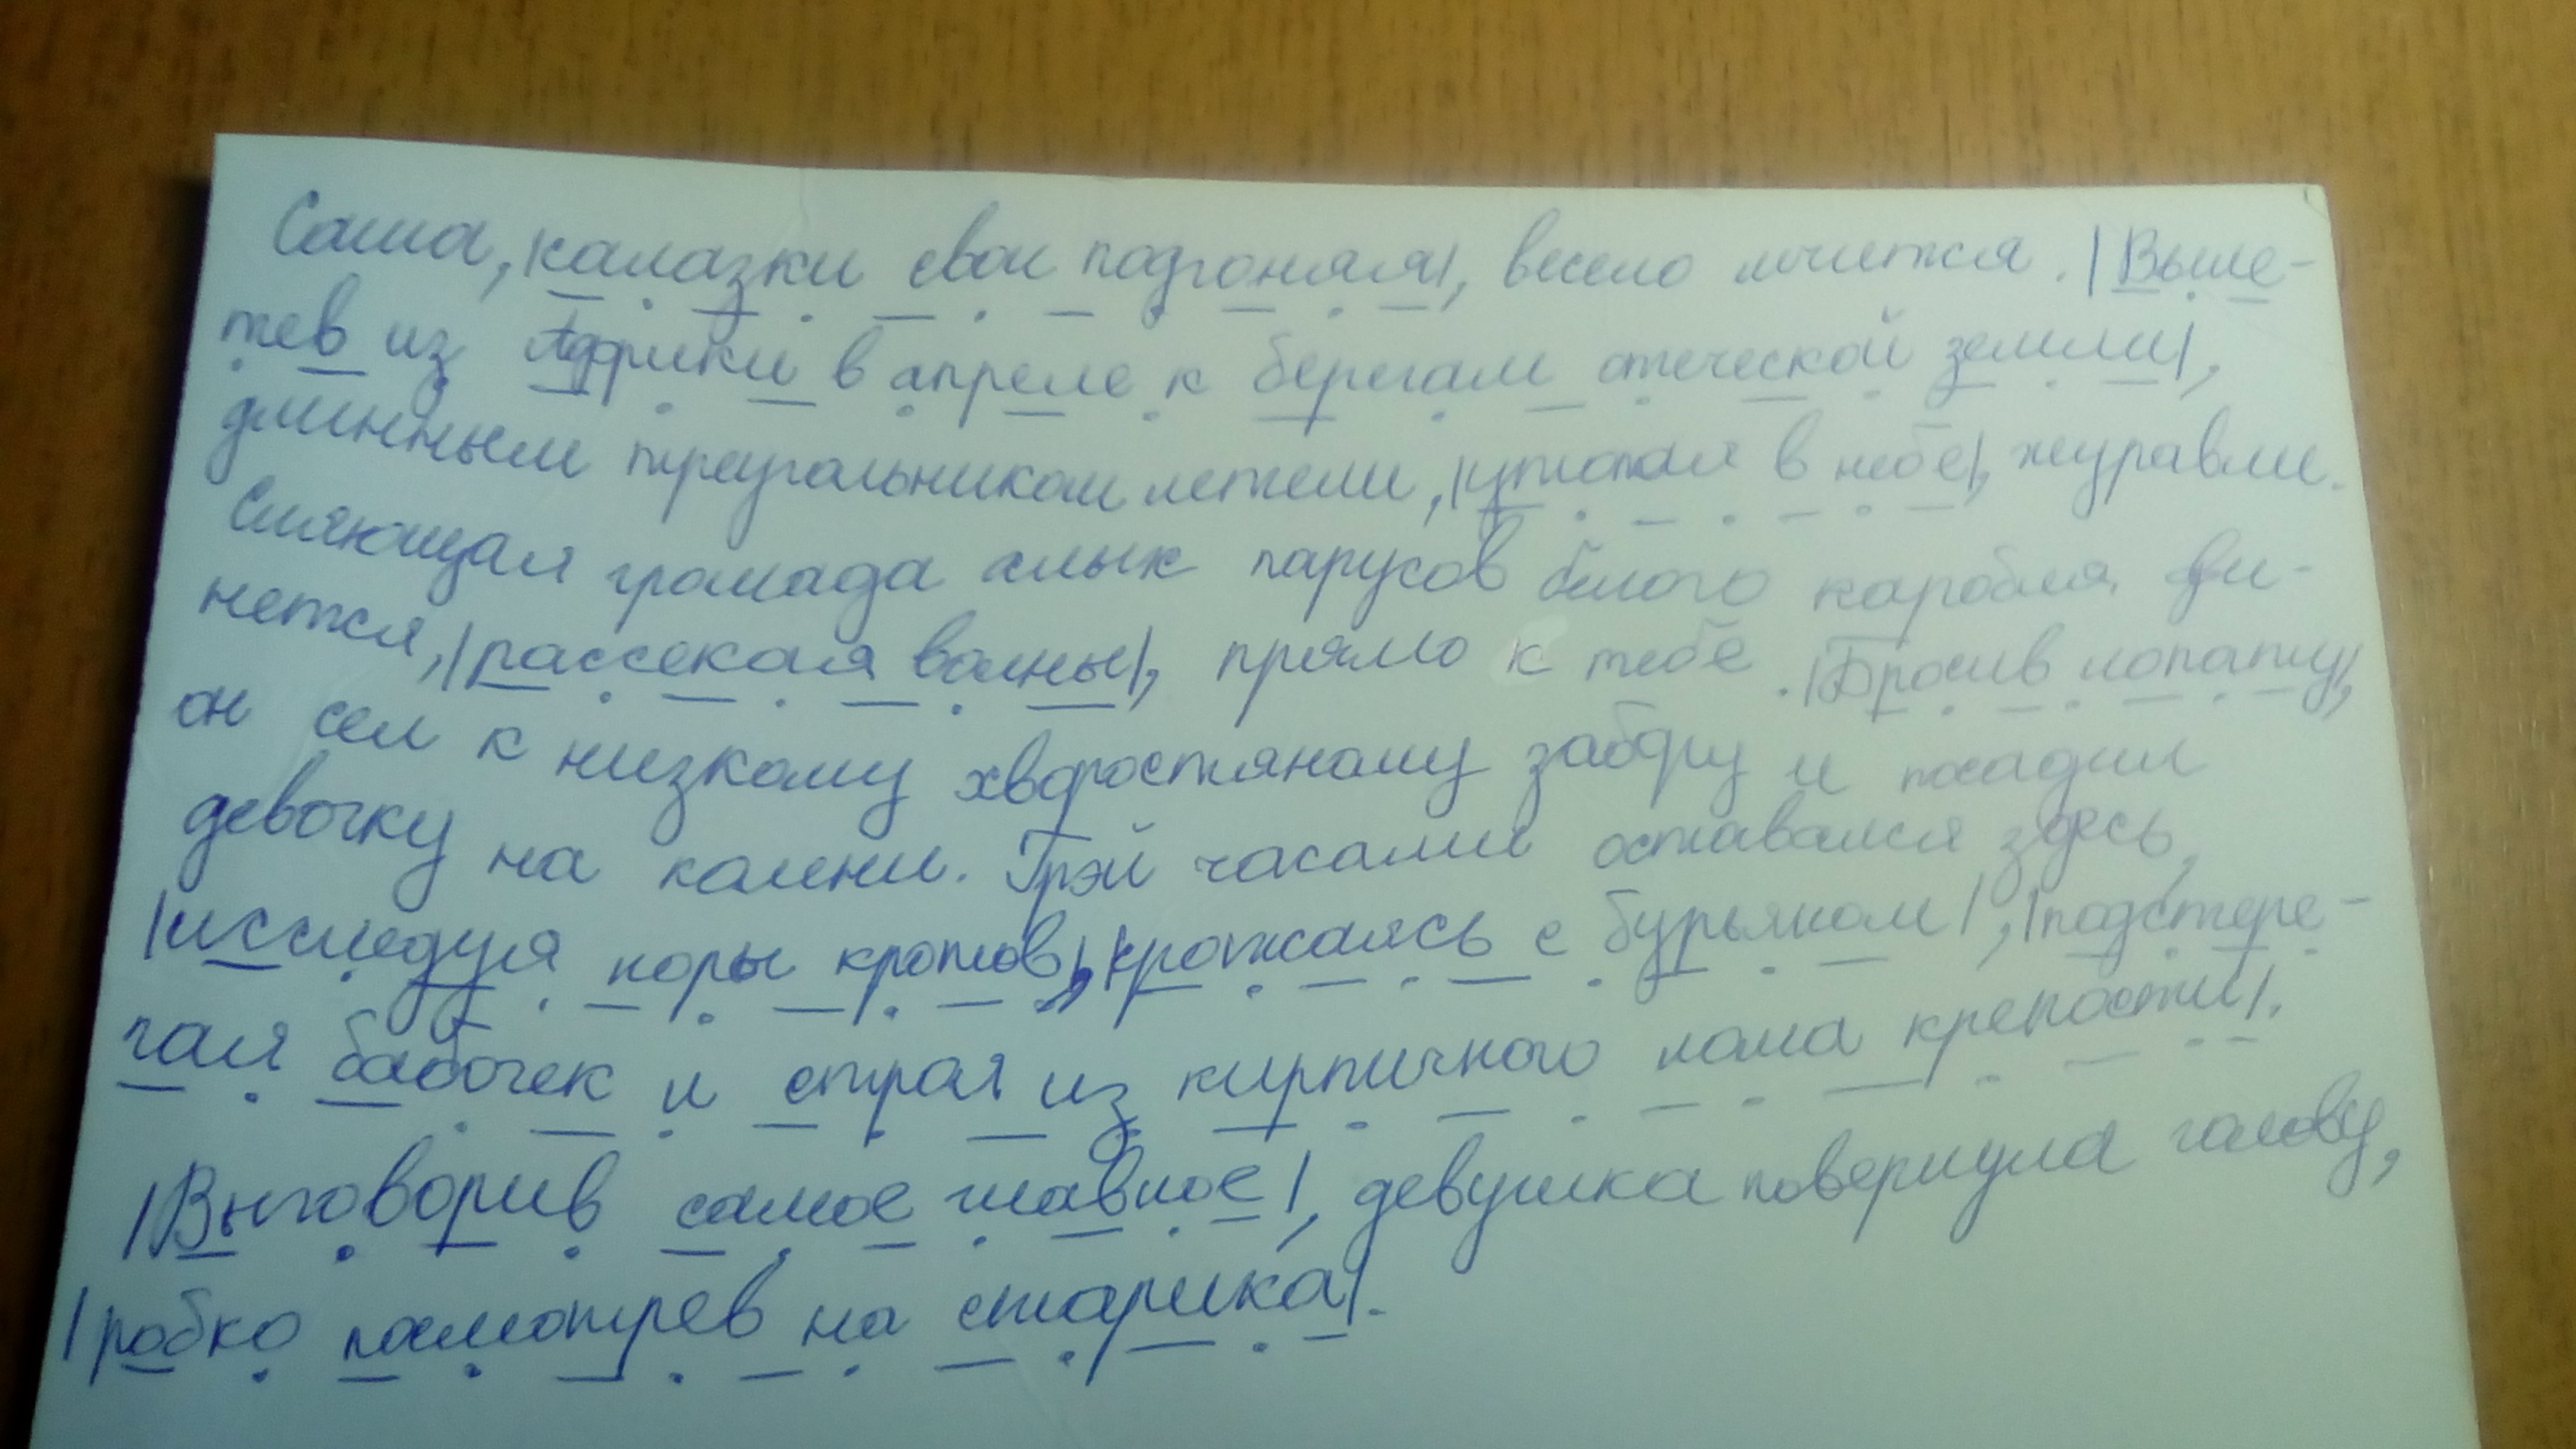 Саша, |салазки свои подгоняя|, весело мчится. |Выле-
тев из Африки в апреле к берегам отеческой земли|,
длинным треугольником летели, |утопая в небе|, журавли.
Сияющая громада алых парусов белого корабля дви-
нется, |рассекая волны|, прямо к тебе. |Бросив лопату|,
он сел к низкому хворостяному забору и посадил
девочку на колени. Грэй часами оставался здесь,
|исследуя норы кротов|, |сражаясь с бурьяном|, |подстере-
гая бабочек и строя из кирпичного лома крепости|.
|Выговорив самое главное|, девушка повернула голову,
|робко посмотрев на старика|.